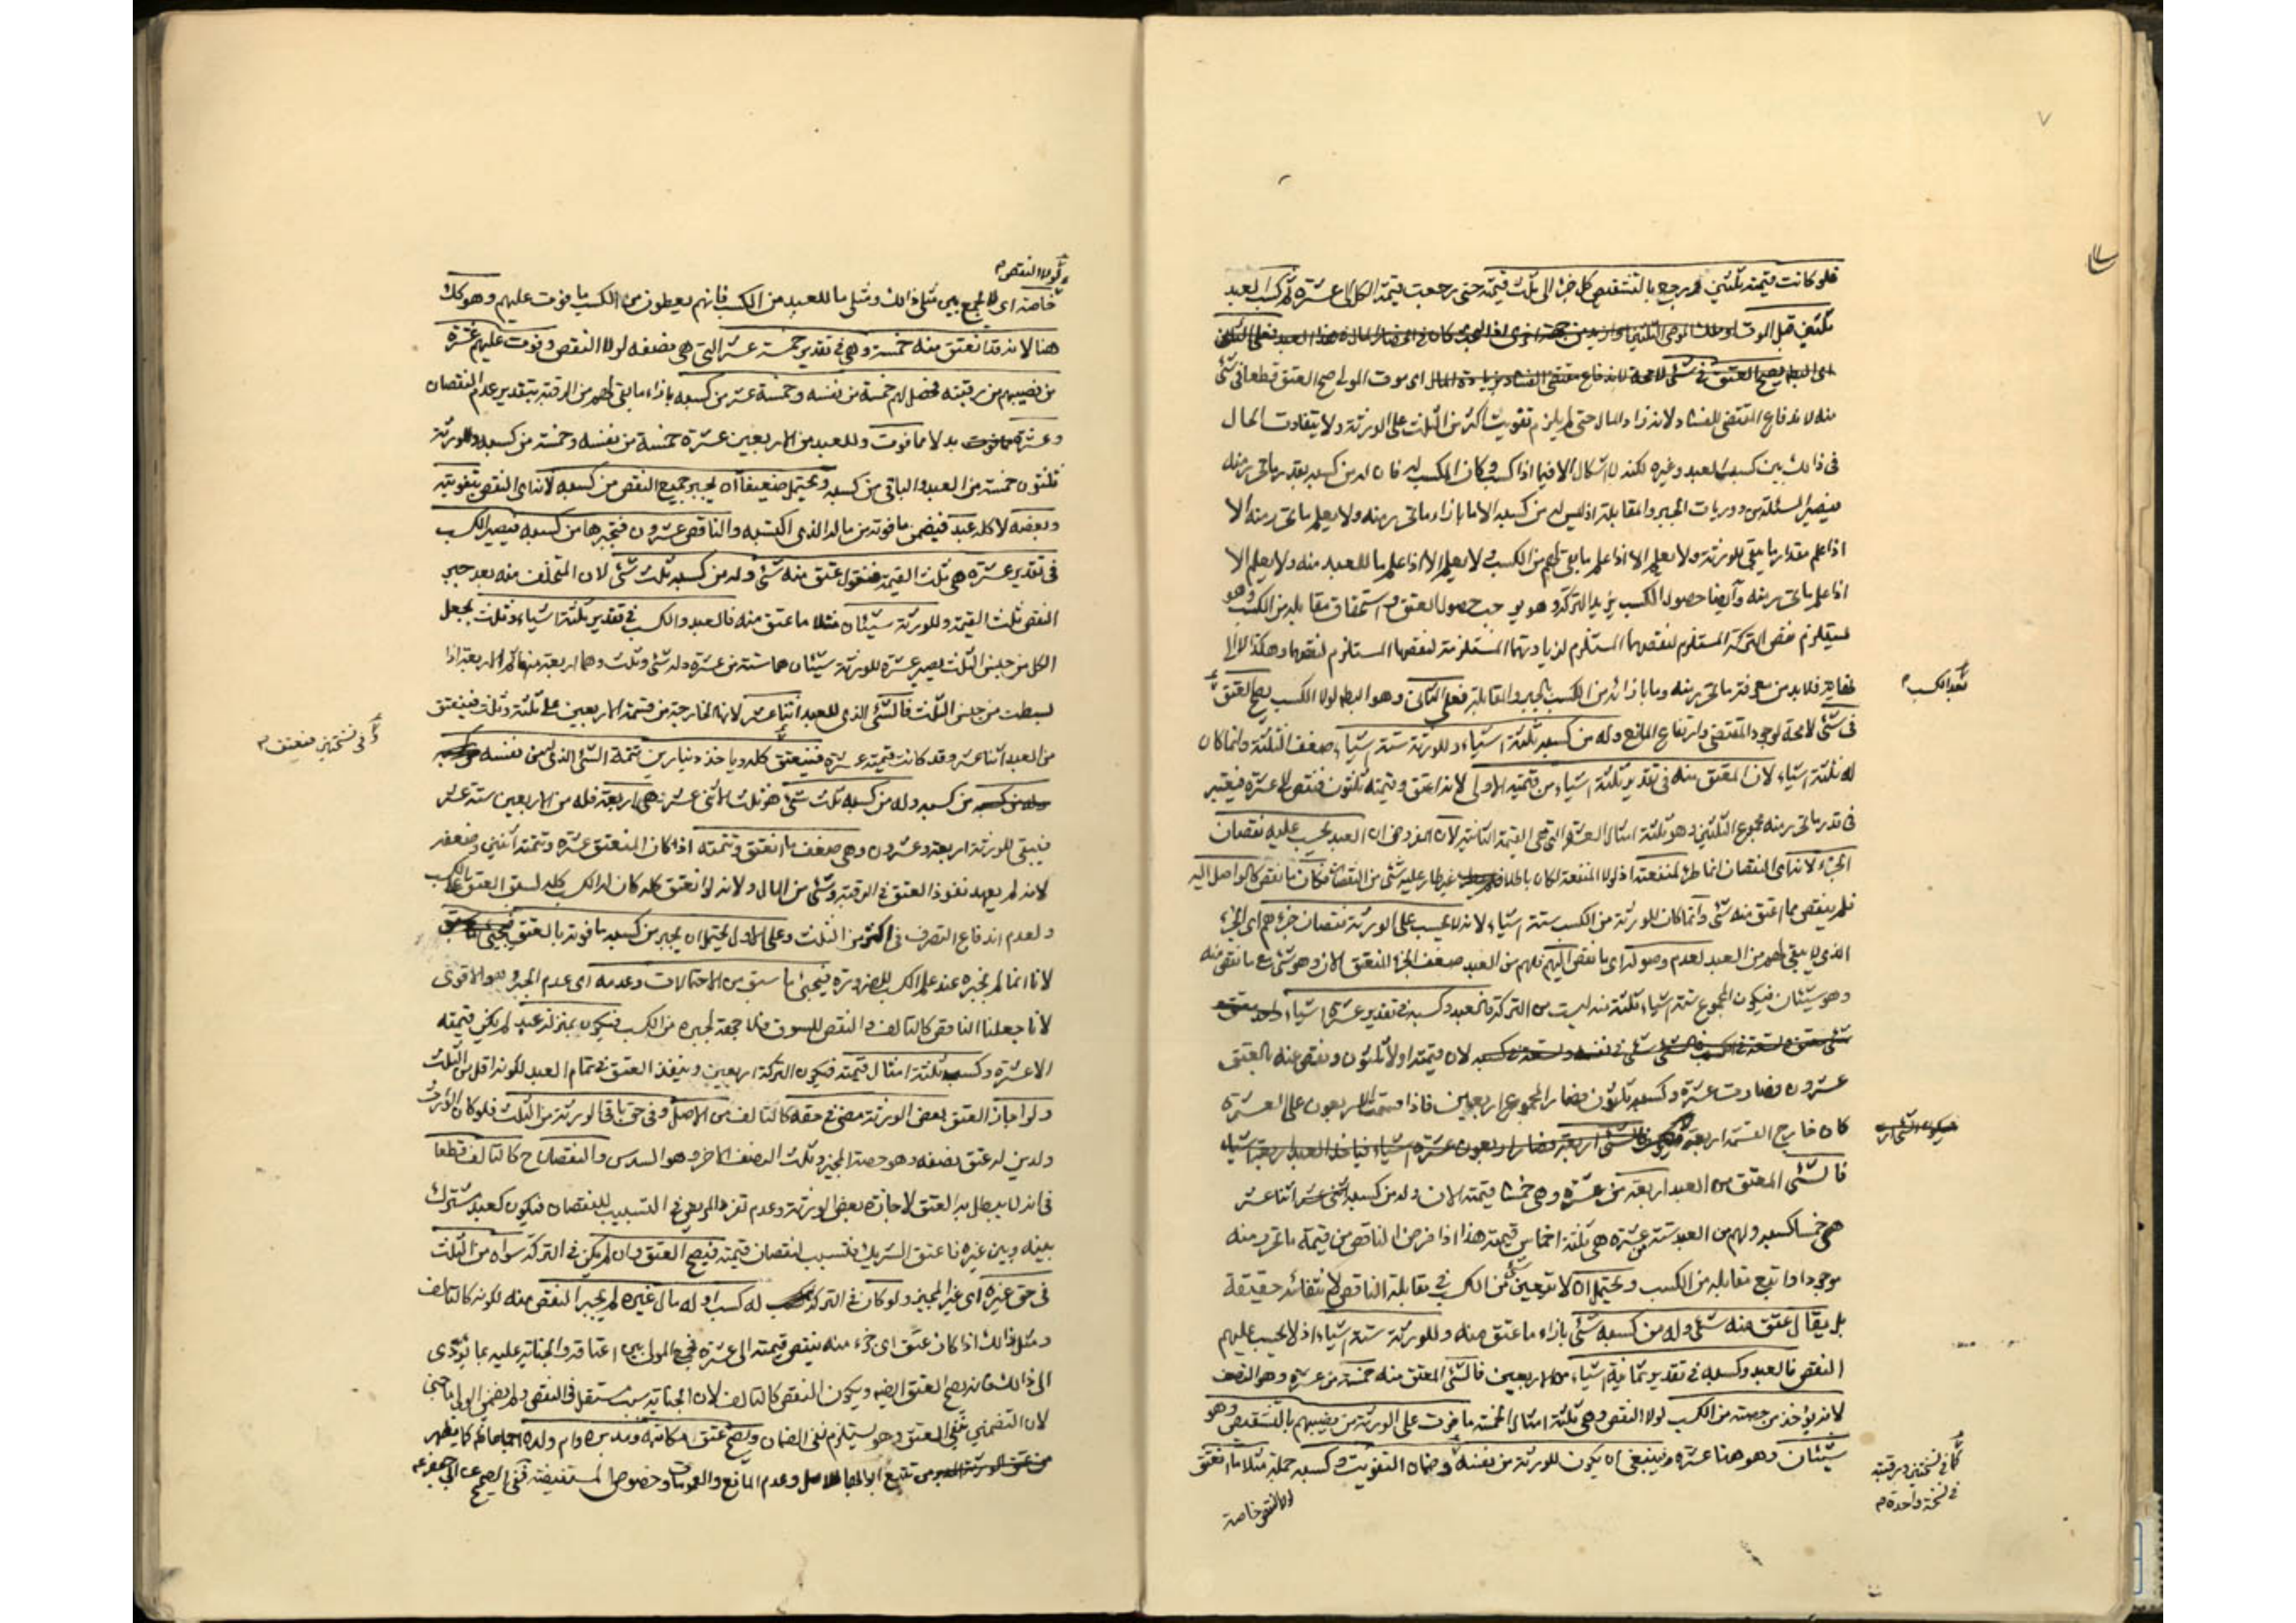 فلو كانت قيمته ثلثين فرجع بالتنقيص كل جزء الى ثلث قيمته حتى رجعت قيمة الكل الى عشرة ثم كسب العبد
ثلثين قبل الموت
اى موت المولى صح العتق قطعا فى شئ
منه لاندفاع المقتضى للفساد ولانه زاد المال حتى لم يلزم تفويت اكثر من الثلث على الورثة ولا يتفاوت الحال
فى ذلك بين كسب العبد وغيره لكنه لا اشكال الا فيما اذا كسب وكان المكسب له فان له من كسبه بقدر ما تحرر منه
فيصير المسئلة من دوريات الجبر والمقابلة اذ ليس له من كسبه الا ما بازاء ما تحرر منه ولا يعلم ما تحرر منه الا
اذا علم مقدار ما يبقى للورثة ولا يعلم الا اذا علم ما يبقى لهم من الكسب ولا يعلم الا اذا علم ما للعبد منه ولا يعلم الا
اذا علم ما تحرر منه وايضا حصول الكسب يزيد التركة وهو يوجب حصول العتق و استحقاق مقابله من الكسب وهو
يستلزم نقص التركة المستلزم لنقصهما المستلزم لزيادتهما المستلزمة لنقصها المستلزم لنقصهما وهكذا الى
فلابد من معرفة ما تحرر منه وما بازائه من الكسب بالجبر والمقابلة فعلى الثانى وهو البط لولا الكسب يصح العتق
بعد الكسب
فى شئ لا محة لوجود المقتضى وارتفاع المانع وله من كسبه ثلثة اشياء وللورثة ستة اشياء ضعف الثلثة وانما كان
له ثلثة اشياء لان المعتق منه فى تقدير ثلثة اشياء من قيمته الاولى لانه اعتق وقيمته ثلثون فنقص الى عشرة فيعتبر
فى قدر ما تحرر منه مجموع الثلثين وهو ثلثة امثال العشرة التى هى القيمة الثانية لان المفروض ان العبد يحسب عليه نقصان
الجزء لانه اى النقصان انما طرء لمنفعته اذ لولا المنفعة لكان باطلا
فلم ينقص مما اعتق منه شئ وانما كان للورثة من الكسب ستة اشياء لانه لا يحسب على الورثة نقصان جزءهم اى الجزء
الذى يبقى لهم من العبد لعدم وصوله اى ما نقص اليهم فلهم من العبد ضعف الجزء المنعتق الان وهو شئ مع ما نقص منه
وهو شيئان فيكون المجموع ستة اشياء ثلثة منه ليست من التركة فالعبد وكسبه فى تقدير عشرة اشياء
لان قيمته اولا ثلثون ونقص عنه بالعتق
عشرون فصارت عشرة وكسبه ثلثون فصار المجموع اربعين فاذا قسمت الاربعون على العشرة
كان خارج القسمة اربعة
فالشئ المعتق من العبد اربعة من عشرة وهى خمسا قيمته الان وله من كسبه اثنا عشر
هى خمسا كسبه ولهم من العبد ستة من عشرة هى ثلثة اخماس قيمته هذا اذا فرض الناقص من قيمة ما تحرر منه
موجودا واتبع مقابله من الكسب ويحتمل ان لا يتعين شئ من الكسب فى مقابلة الناقص لانتفائه حقيقة
بل يقال عتق منه شئ وله من كسبه شئ بازاء ما عتق منه وللورثة ستة اشياء اذ لا يحسب عليهم
النقص فالعبد وكسبه فى تقدير ثمانية اشياء من اربعين فالشئ المعتق منه خمسة من عشرة وهو النصف
لانه يؤخذ من حصته من الكسب لولا النقص وهى ثلثة امثال الخمسة ما فوت على الورثة من نصيبهم بالتنقيص وهو
شيئان وهو هنا عشرة وينبغى ان يكون للورثة من نفسه وضمان التفويت وكسبه جملة مثلا ما انعتق
لولا النقص خاصة
كما فى نسختين و رقبته
فى نسخة واحدة
لولا النقص
خاصة اى لا يجمع بين مثلى ذلك ومثلى ما للعبد من الكسب فانهم يعطون من الكسب ما فوت عليهم وهو كك
هنا لانه قد انعتق منه خمسة وهى فى تقدير خمسة عشر التى هى نصفه لولا النقص وفوت عليهم عشرة
من نصيبهم من رقبته فحصل لهم خمسة من نفسه وخمسة عشر من كسبه بازاء ما بقى لهم من الرقبة بتقدير عدم النقصان
وعشرة بدلا مما فوت وللعبد من الاربعين عشرة خمسة من نفسه وخمسة من كسبه وللورثة
ثلثون خمسة من العبد والباقى من كسبه ويحتمل ضعيفا ان يجبر جميع النقص من كسبه لانه اى النقص بتفويته
وبعضه لا كله عبد فيضمن ما فوته من ماله الذى اكتسبه والناقص عشرون فتجبرها من كسبه فيصير الكسب
فى تقدير عشرة هى ثلث القيمة فنقول عتق منه شئ وله من كسبه ثلث شئ لان المتخلف منه بعد جبر
النقص ثلث القيمة وللورثة شيئان مثلا ما عتق منه فالعبد والكسب فى تقدير ثلثة اشياء وثلث يجعل
الكل من جنس الثلث يصير عشرة للورثة شيئان هما ستة من عشرة وله شئ وثلث وهما اربعة منها
بسطت من جنس الثلث فالشئ الذى للعبد اثنا عشر لانه الخارجة من قسمة الاربعين على ثلثة وثلث فينعتق
من العبد اثنا عشر وقد كانت قيمته عشرة فينعتق كله وياخذ دينارين تتمة الشئ الذى من نفسه
وفى نسختين فينعتق
من كسبه وله من كسبه ثلث شئ هو ثلث الاثنى عشر هى اربعة فله من الاربعين ستة عشر
فيبقى للورثة اربعة وعشرون وهى ضعف ما انعتق وتتمته اذا كان المنعتق عشرة وتتمته اثنين
لانه لم يعهد نفوذ العتق فى الرقبة وشئ من المال ولانه لو انعتق كله كان له الكسب كله لسبق العتق على الكسب
ولعدم اندفاع التصرف فى اكثر من الثلث وعلى الاول يحتمل ان يجبر من كسبه ما فوته بالعتق
لانا انما لم نجبره عند عدم الكسب للضرورة فيجئ ما سبق من الاحتمالات وعدمه اى عدم الجبر وهو الاقوى
لانا جعلنا الناقص كالتالف والنقص للسوق فلا جهة لجبره من الكسب فيكون بمنزلة عبد لم يكن قيمته
الا عشرة وكسب ثلثة امثال قيمته فيكون التركة اربعين وينفذ العتق فى تمام العبد لكونه اقل من الثلث
ولو اجاز العتق بعض الورثة مضى فى حقه كالتالف من الاصل وفى حق باقى الورثة من الثلث فلو كان الوارث
ولدين له عتق نصفه وهو حصة المجيز وثلث النصف الاخر وهو السدس والنقصان ح كالتالف قطعا
فى انه لا يبطل به العتق لاجازة بعض الورثة وعدم تفرد المريض فى التسبيب للنقصان فيكون كعبد مشترك
بينه وبين غيره فاعتق الشريك فتسبب لنقصان قيمته فيصح العتق وان لم يكن فى التركة سواه من الثلث
فى حق غيره اى غير المجيز ولو كان فى التركة له كسب او له مال غيره لم يجبر النقص منه لكونه كالتالف
ومثل ذلك اذا كان عتق اى جزء منه ينقص قيمته الى عشرة فجمع المولى بين اعتاقه والجناية عليه بما يؤدى
الى ذلك فانه يصح العتق ايضا ويكون النقص كالتالف لان الجناية سبب مستقل فى النقص ولم يضمن المولى ما جنى
لان التضمين نفى العتق وهو يستلزم نفى الضمان ويصح عتق مكاتبه ومدبره وام ولده كما يظهر
من تتبع وعدم المانع والعمومات وخصوص المستفيضة ففى الصحيح عن ابى جعفر ع